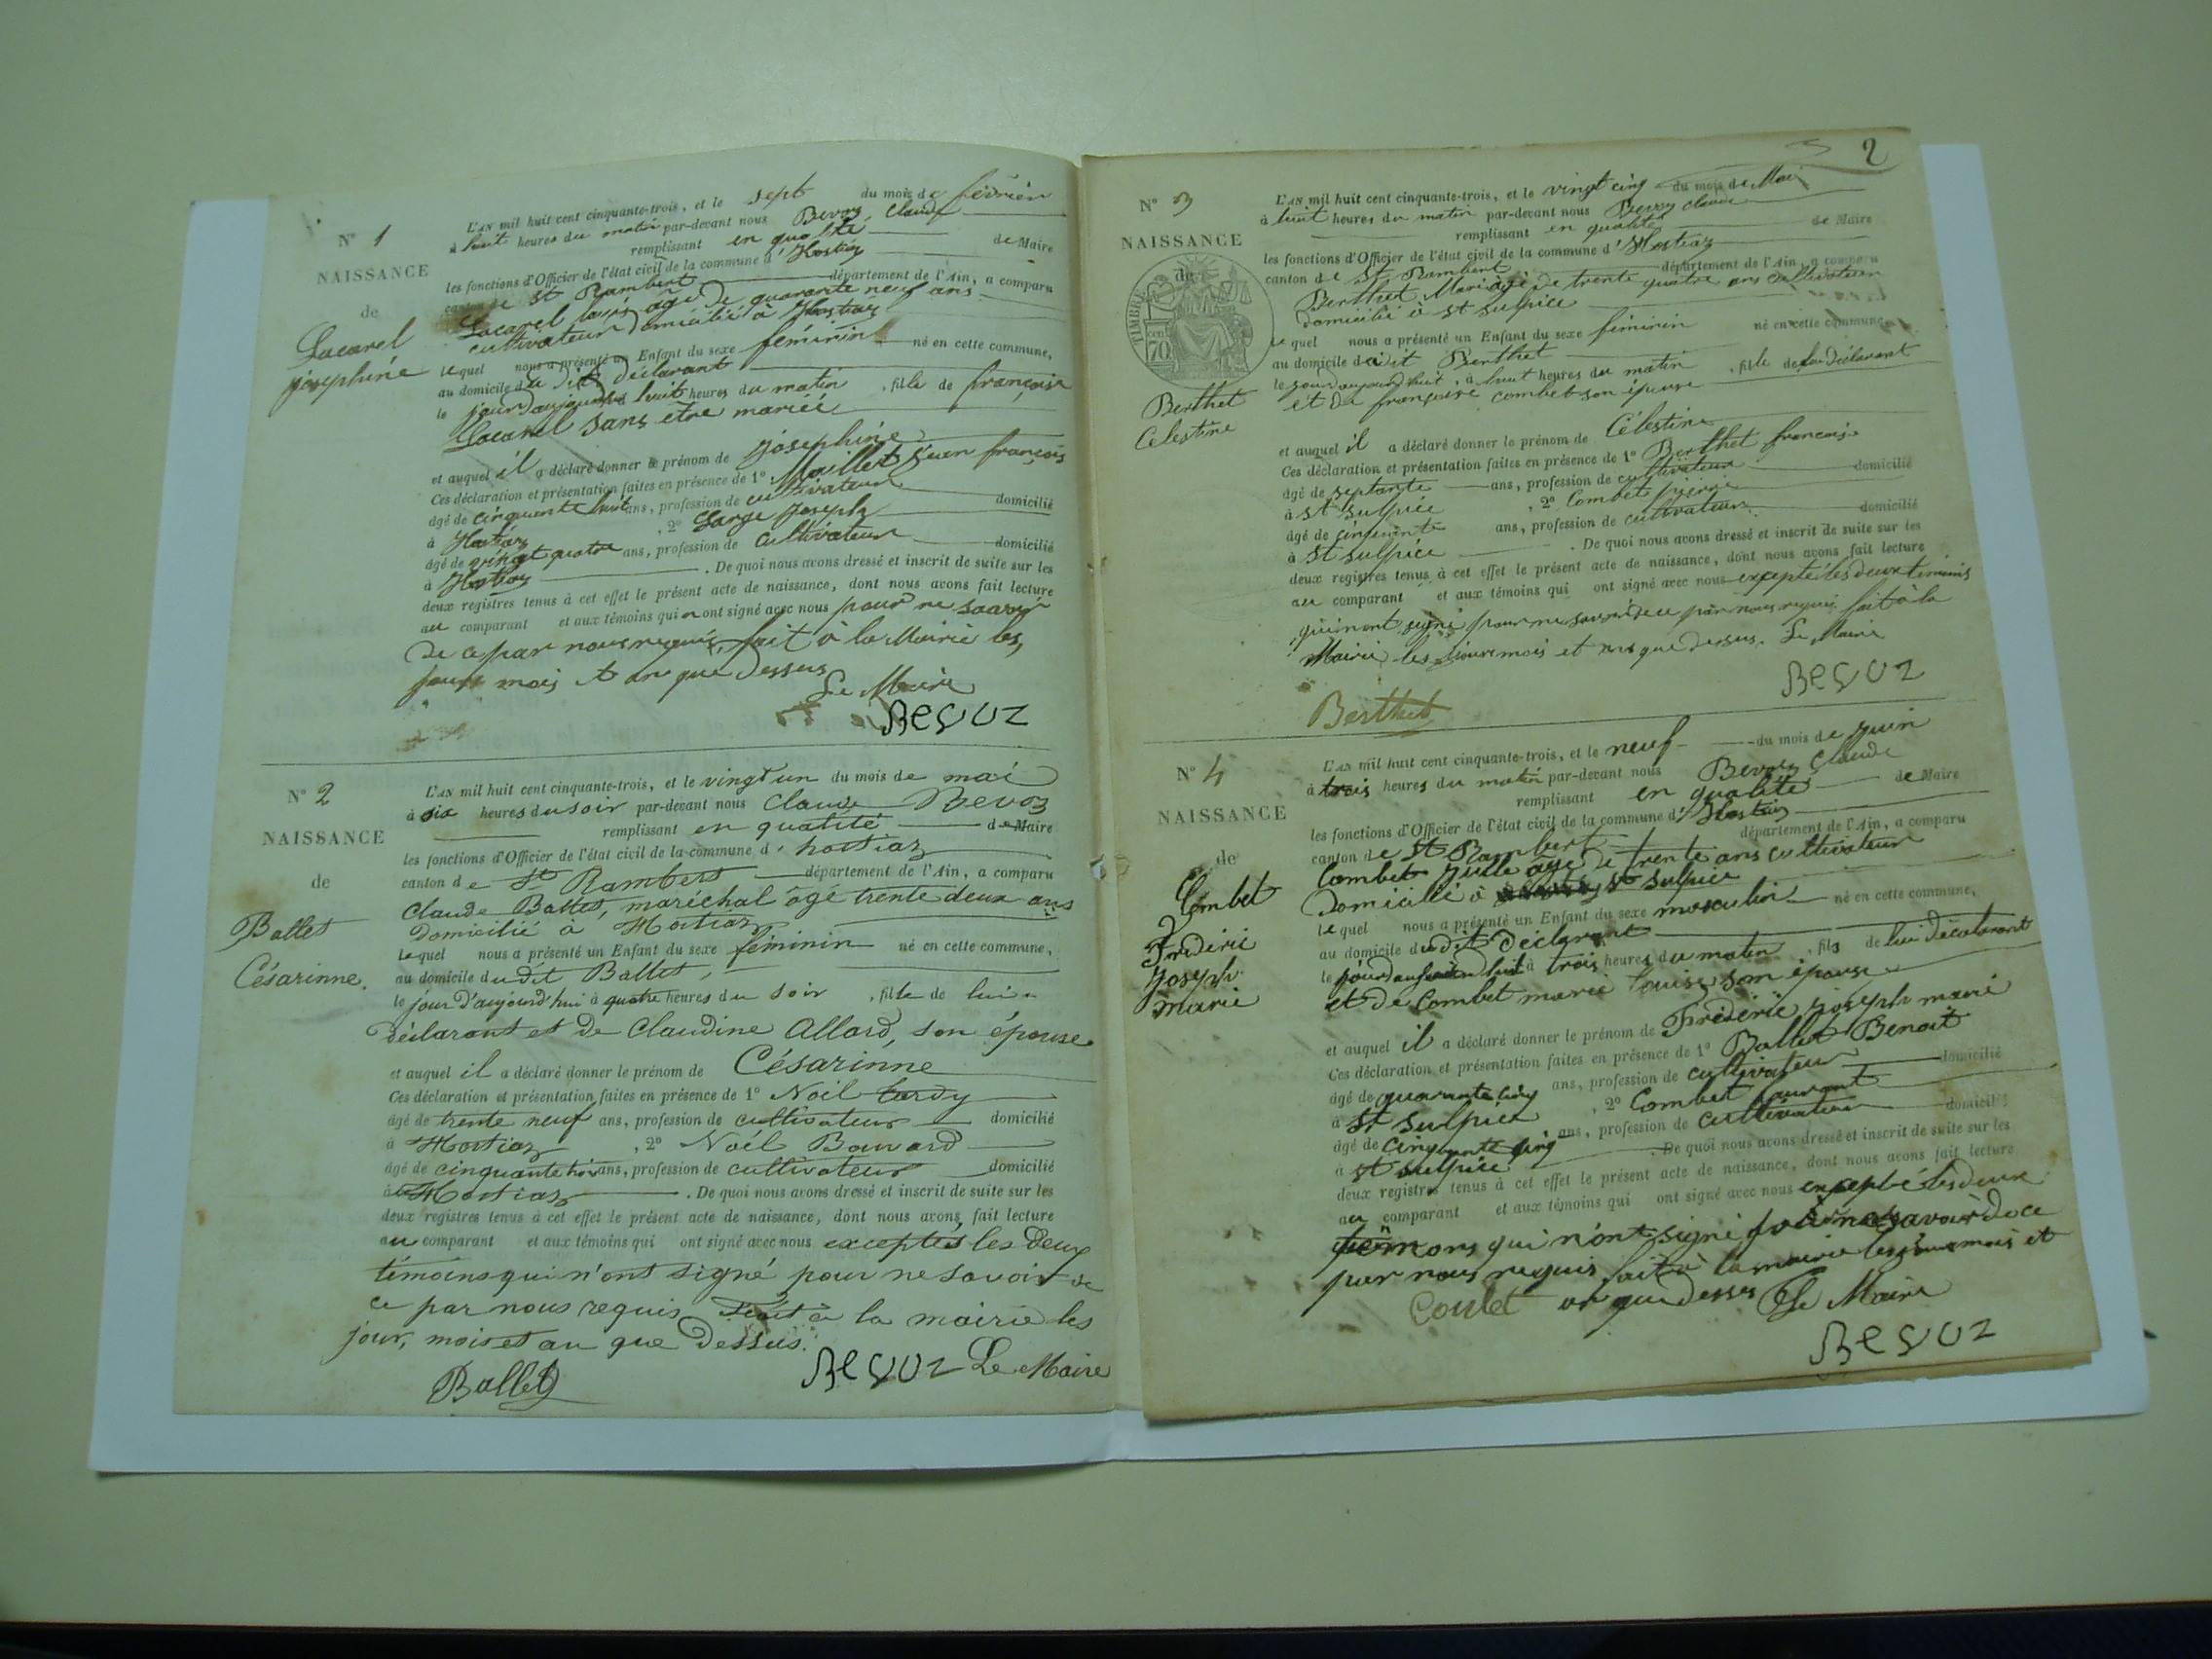 N° 1
NAISSANCE
de
Lacarel
joséphine
L'AN mil huit cent cinquante-trois, et le sept du mois de février
à huit heures du matin par-devant nous Bevoz Claude
remplissant en qualité de Maire
les fonctions d'Officier de l'état civil de la commune d'Hostiaz
canton de St Rambert département de l'Ain, a comparu
Lacarel louis âgé de quarante neuf ans
cultivateur domicilié à Hostiaz
lequel nous a présenté un Enfant du sexe féminin né en cette commune,
au domicile du dit déclarant
le jour d'aujourd'hui huit heures du matin, fille de françoise
Lacarel sans être mariée
et auquel il a déclaré donner le prénom de joséphine
Ces déclaration et présentation faites en présence de 1° Maillet jean françois
âgé de cinquante huit ans, profession de cultivateur domicilié
à Hostiaz, 2° Large joseph
âgé de vingt quatre ans, profession de cultivateur domicilié
à Hostiaz. De quoi nous avons dressé et inscrit de suite sur les
deux registres tenus à cet effet le présent acte de naissance, dont nous avons fait lecture
au comparant et aux témoins qui n ont signé avec nous pour ne savoir
de ce par nous requis, fait à la Mairie les
jour mois et an que dessus
Le Maire
BEVOZ
N° 2
NAISSANCE
de
Ballet
Césarinne.
L'AN mil huit cent cinquante-trois, et le vingt un du mois de mai
à six heures du soir par-devant nous Claude Bevoz
remplissant en qualité de Maire
les fonctions d'Officier de l'état civil de la commune d'hostiaz
canton de St Rambert département de l'Ain, a comparu
Claude Ballet, maréchal âgé trente deux ans
domicilié à Hostiaz
lequel nous a présenté un Enfant du sexe féminin né en cette commune,
au domicile du dit Ballet,
le jour d'aujourd'hui à quatre heures du soir, fille de lui
déclarant et de Claudine Allard, son épouse
et auquel il a déclaré donner le prénom de Césarinne
Ces déclaration et présentation faites en présence de 1° Noël tardy
âgé de trente neuf ans, profession de cultivateur domicilié
à Hostiaz, 2° Noël Bavard
âgé de cinquante trois ans, profession de cultivateur domicilié
à Hostiaz. De quoi nous avons dressé et inscrit de suite sur les
deux registres tenus à cet effet le présent acte de naissance, dont nous avons fait lecture
au comparant et aux témoins qui ont signé avec nous exceptés les deux
témoins qui n'ont signé pour ne savoir de
ce par nous requis fait à la mairie les
jour, mois et an que dessus.
Ballet
BEVOZ Le Maire
2
N° 3
NAISSANCE
de
TIMBRE
70
Berthet
Célestine
L'AN mil huit cent cinquante-trois, et le vingt cinq du mois de Mai
à huit heures du matin par-devant nous Bevoz Claude
remplissant en qualité de Maire
les fonctions d'Officier de l'état civil de la commune d'Hostiaz
canton de St Rambert département de l'Ain, a comparu
Berthet Marie âgé de trente quatre ans cultivateur
domicilié à St sulpice
lequel nous a présenté un Enfant du sexe féminin né en cette commune,
au domicile du dit Berthet
le jour d'aujourd'huit, à huit heures du matin, fille de lui déclarant
et de françoise combet son épouse
et auquel il a déclaré donner le prénom de Célestine
Ces déclaration et présentation faites en présence de 1° Berthet françois
âgé de septante ans, profession de cultivateur domicilié
à St sulpice, 2° Combet pierre
âgé de cinquante ans, profession de cultivateur domicilié
à St sulpice. De quoi nous avons dressé et inscrit de suite sur les
deux registres tenus à cet effet le présent acte de naissance, dont nous avons fait lecture
au comparant et aux témoins qui ont signé avec nous excepté les deux temoins
qui n'ont signé pour ne savoir de ce par nous requis fait à la
Mairie les jour mois et an que dessus. Le Maire
BEVOZ
Berthet
N° 4
NAISSANCE
de
Combet
Fréderic
Joseph
marie
L'AN mil huit cent cinquante-trois, et le neuf du mois de juin
à trois heures du matin par-devant nous Bevoz Claude
remplissant en qualité de Maire
les fonctions d'Officier de l'état civil de la commune d'Hostiaz
canton de St Rambert département de l'Ain, a comparu
Combet âgé de trente ans cultivateur
domicilié à St sulpice
lequel nous a présenté un Enfant du sexe masculin né en cette commune,
au domicile du dit déclarant
le jour d'aujourd'huit à trois heures du matin, fils de lui décalarant
et de Combet marie louise son épouse
et auquel il a déclaré donner le prénom de Fréderic joseph marie
Ces déclaration et présentation faites en présence de 1° Ballet Benoit
âgé de quarante cinq ans, profession de cultivateur domicilié
à St sulpice, 2° Combet laurent
âgé de cinquante cinq ans, profession de cultivateur domicilié
à St sulpice. De quoi nous avons dressé et inscrit de suite sur les
deux registres tenus à cet effet le présent acte de naissance, dont nous avons fait lecture
au comparant et aux témoins qui ont signé avec nous excepté les deux
qui n'ont signé pour ne savoir de ce
par nous requis fait à la mairie les jour mois et
an que desses Le Maire
BEVOZ